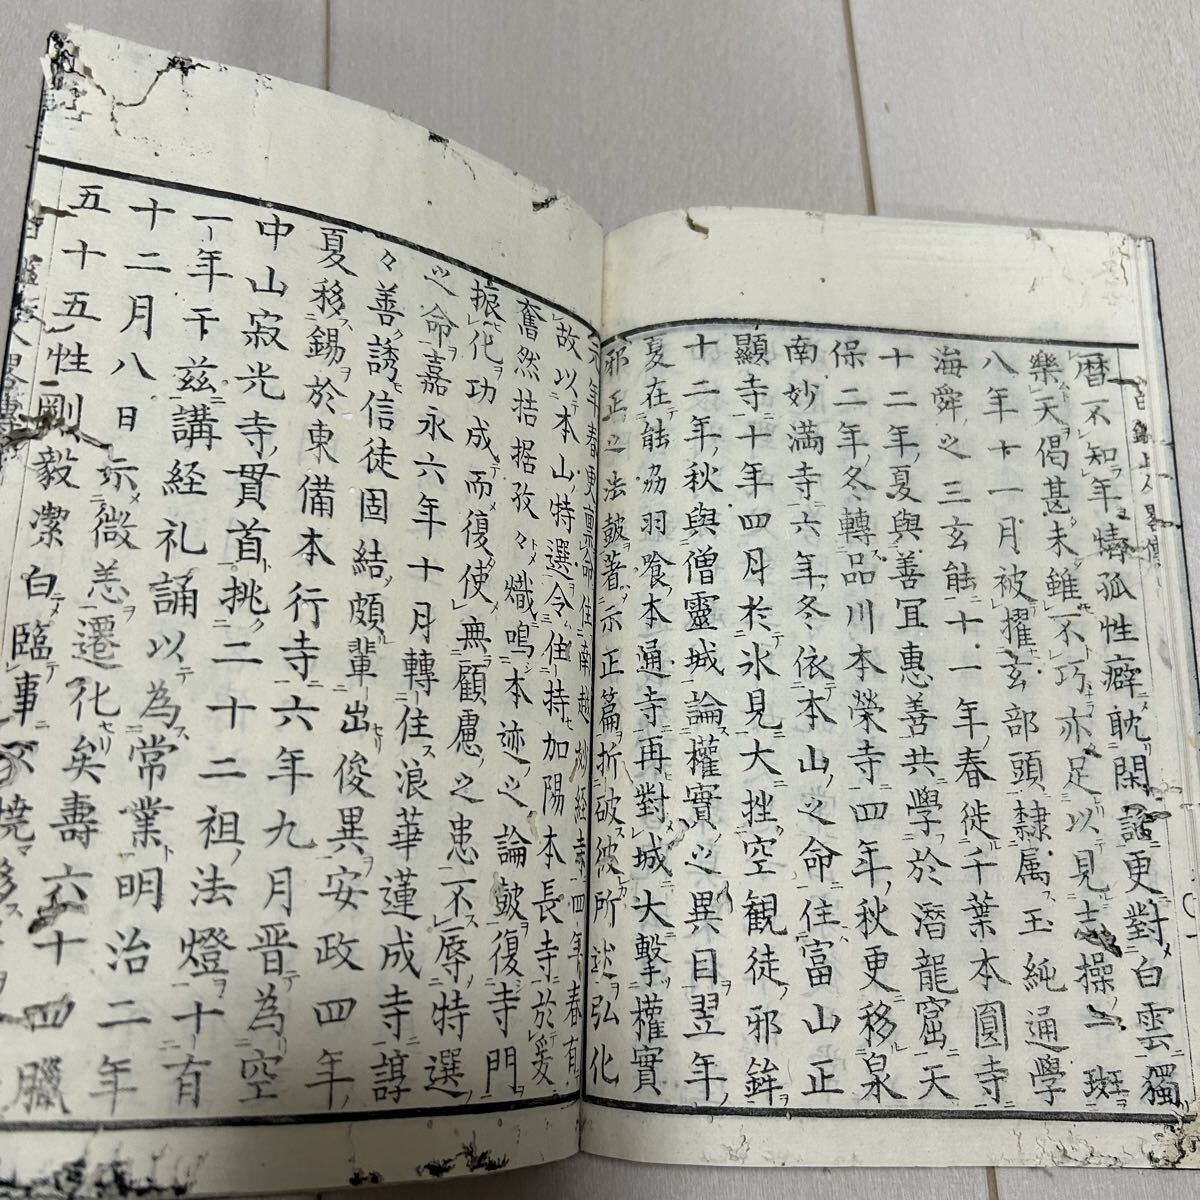 暦不知年情孤性癖耽閑談更對白雲獨
樂天偈甚未雖不巧亦足以見志操一斑
八年十一月被擢玄部頭隸属玉純通學
海舜之三玄能十一年春徙千葉本圓寺
十二年夏與善冝惠善共學於潛龍窟天
保二年冬轉品川本榮寺四年秋更移泉
南妙満寺六年冬依本山之命住富山正
顯寺十年四月於氷見大挫空観徒邪鉾
十二年秋與僧靈城論權實之異目翌年
夏在能州羽喰本通寺再對城大擊權實
邪正之法皷著示正篇折破彼所述弘化
元年春更稟命住南越妙経寺四年春有
故以本山特選令住持加陽本長寺於爰
奮然拮据孜々熾鳴本迹之論皷復寺門
振化功成而復使無顧慮之患不辱特選
之命嘉永六年十月轉住浪華蓮成寺諄
々善誘信徒固結頗輩出俊異安政四年
夏移錫於東備本行寺六年九月晋為空
中山寂光寺貫首挑二十二祖法燈十有
一年于茲講経礼誦以為常業明治二年
十二月八日示微恙遷化矣壽六十四臘
五十五性剛毅潔白臨事不撓移